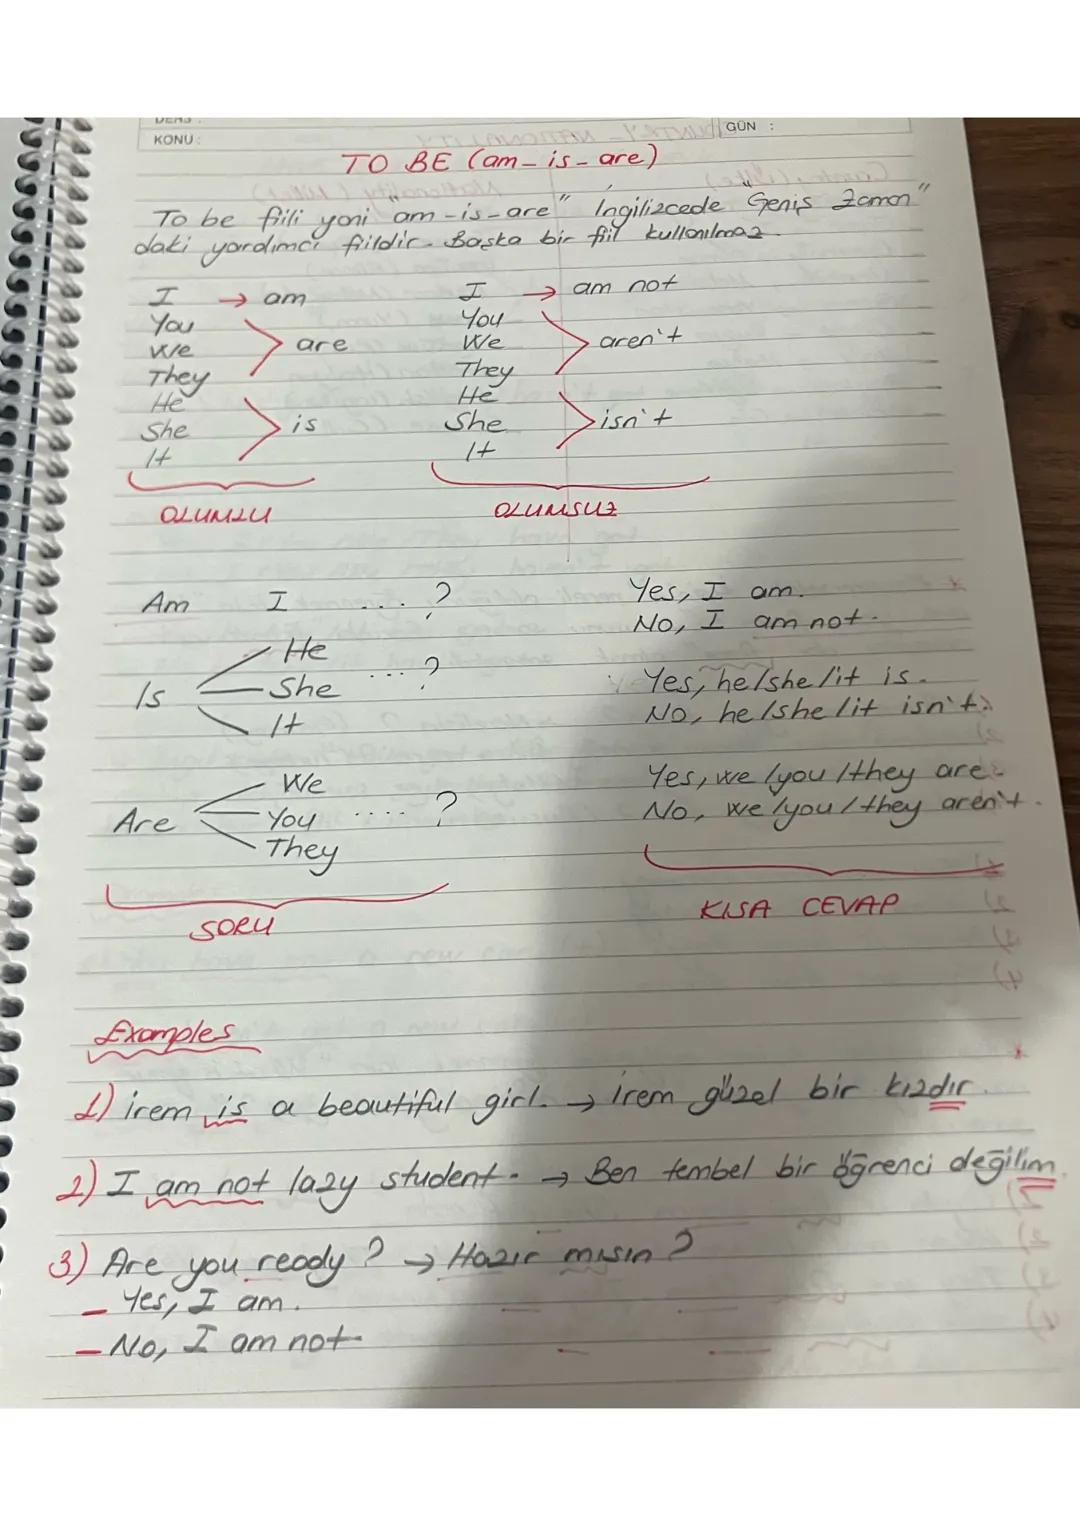 DERS :
KONU :
GÜN :
TO BE (am - is - are)
To be fiili yani "am - is - are" İngilizcede "Geniş Zaman"
daki yardımcı fiildir. Başka bir fiil kullanılmaz.
I → am
You
We
They
are
He
She
It
is
OLUMLU
I → am not
You
We
They
aren't
He
She
It
isn't
OLUMSUZ
Am I .... ?
Yes, I am.
No, I am not.
Is
He
She
It
.... ?
Yes, he/she/it is.
No, he/she/it isn't.
Are
We
You
They
.... ?
Yes, we/you/they are.
No, we/you/they aren't.
SORU
KISA CEVAP
Examples
1) irem is a beautiful girl. → irem güzel bir kızdır.
2) I am not lazy student. → Ben tembel bir öğrenci değilim.
3) Are you ready? → Hazır mısın?
- Yes, I am.
- No, I am not.